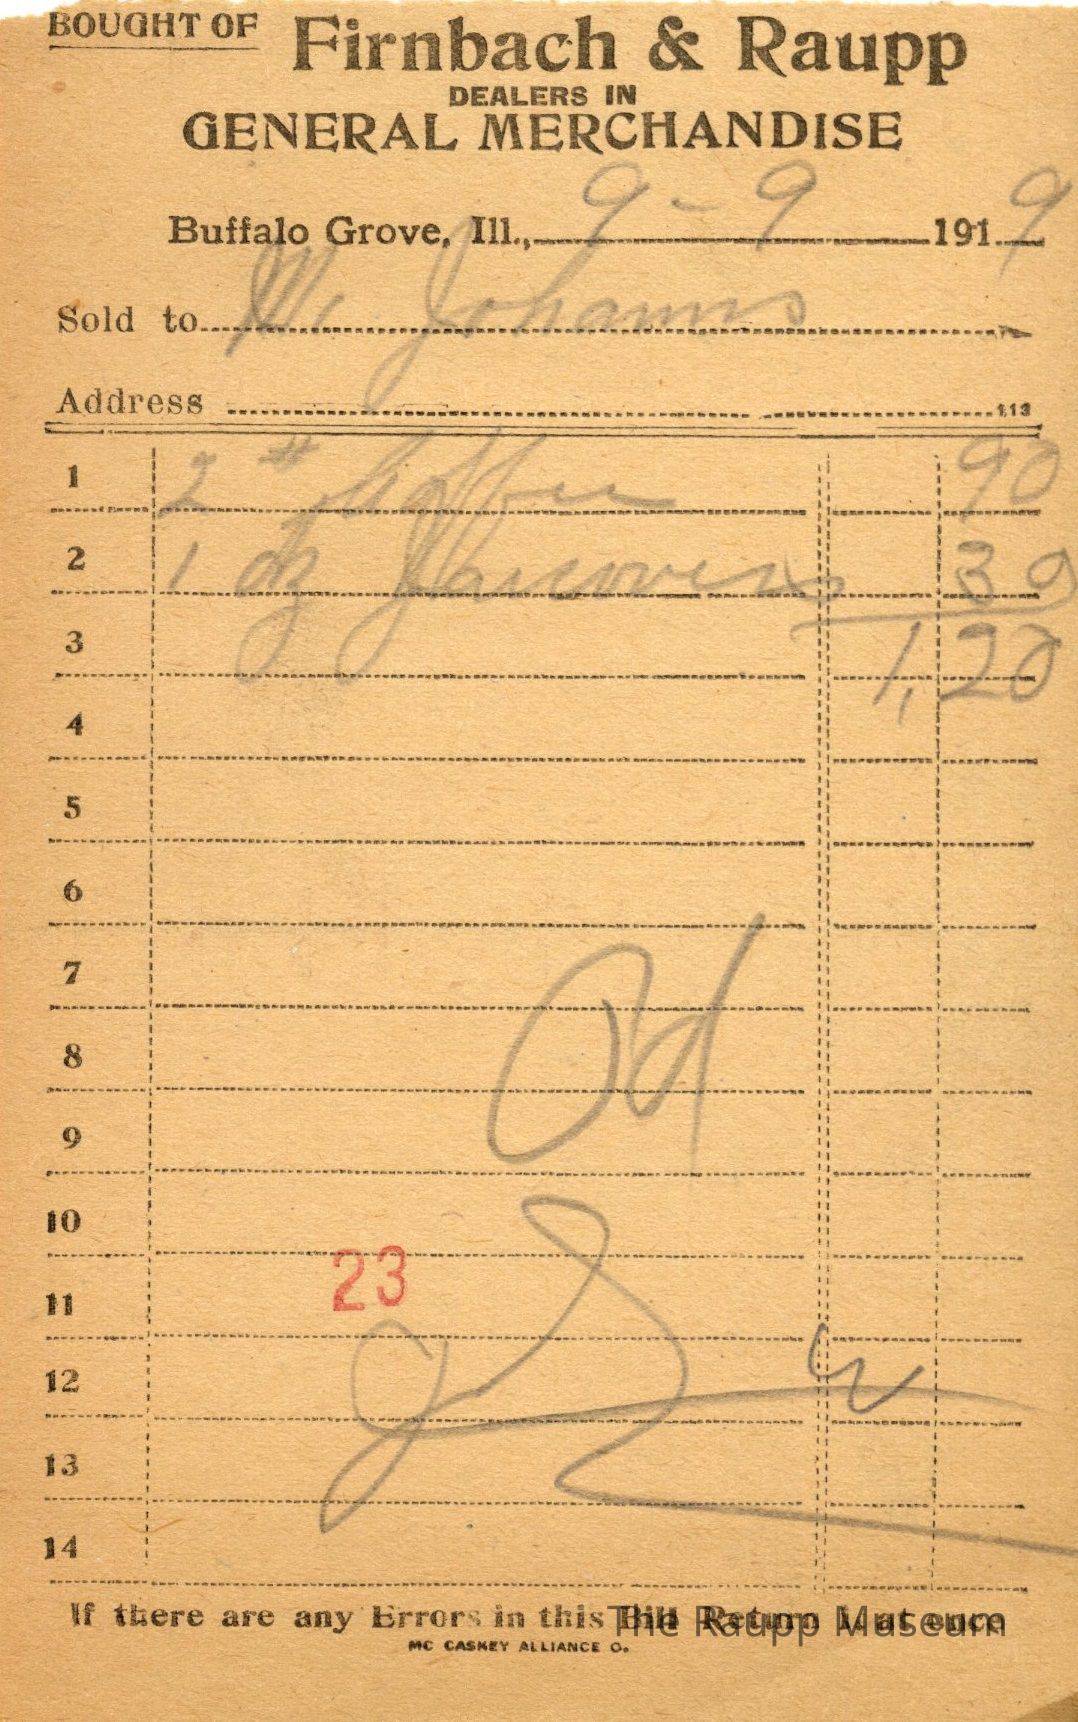 BOUGHT OF Firnbach & Raupp
DEALERS IN
GENERAL MERCHANDISE
Buffalo Grove, Ill., 9 - 9 1919
Sold to Johanns
Address
113
1 2 # Coffee 90
2 1 dz 30
3 1,20
4
5
6
7
8
9
10
23
11
12
13
14
If there are any Errors in this Bill Return it at once
The Raupp Museum
MC CASKEY ALLIANCE O.